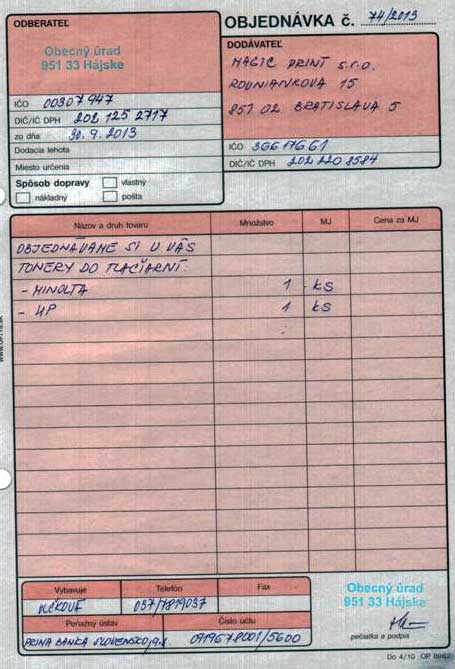 ODBERATEĽ
Obecný úrad
951 33 Hájske
IČO 00307947
DIČ/IČ DPH 202 125 2717
zo dňa 30.9.2013
Dodacia lehota
Miesto určenia
Spôsob dopravy
vlastný
nákladný
pošta
OBJEDNÁVKA č. 74/2013
DODÁVATEĽ
MAGIC PRINT s.r.o.
ROVNIANKOVA 15
851 02 BRATISLAVA 5
IČO 36617661
DIČ/IČ DPH 202 220 8584
Názov a druh tovaru Množstvo MJ Cena za MJ
OBJEDNÁVAME SI U VÁS
TONERY DO TLAČIARNÍ:
- MINOLTA 1 ks
- HP 1 ks
Vybavuje Telefón Fax
037/7819037
Peňažný ústav Číslo účtu
PRIMA BANKA SLOVENSKO, a.s. /5600
Obecný úrad
951 33 Hájske
pečiatka a podpis